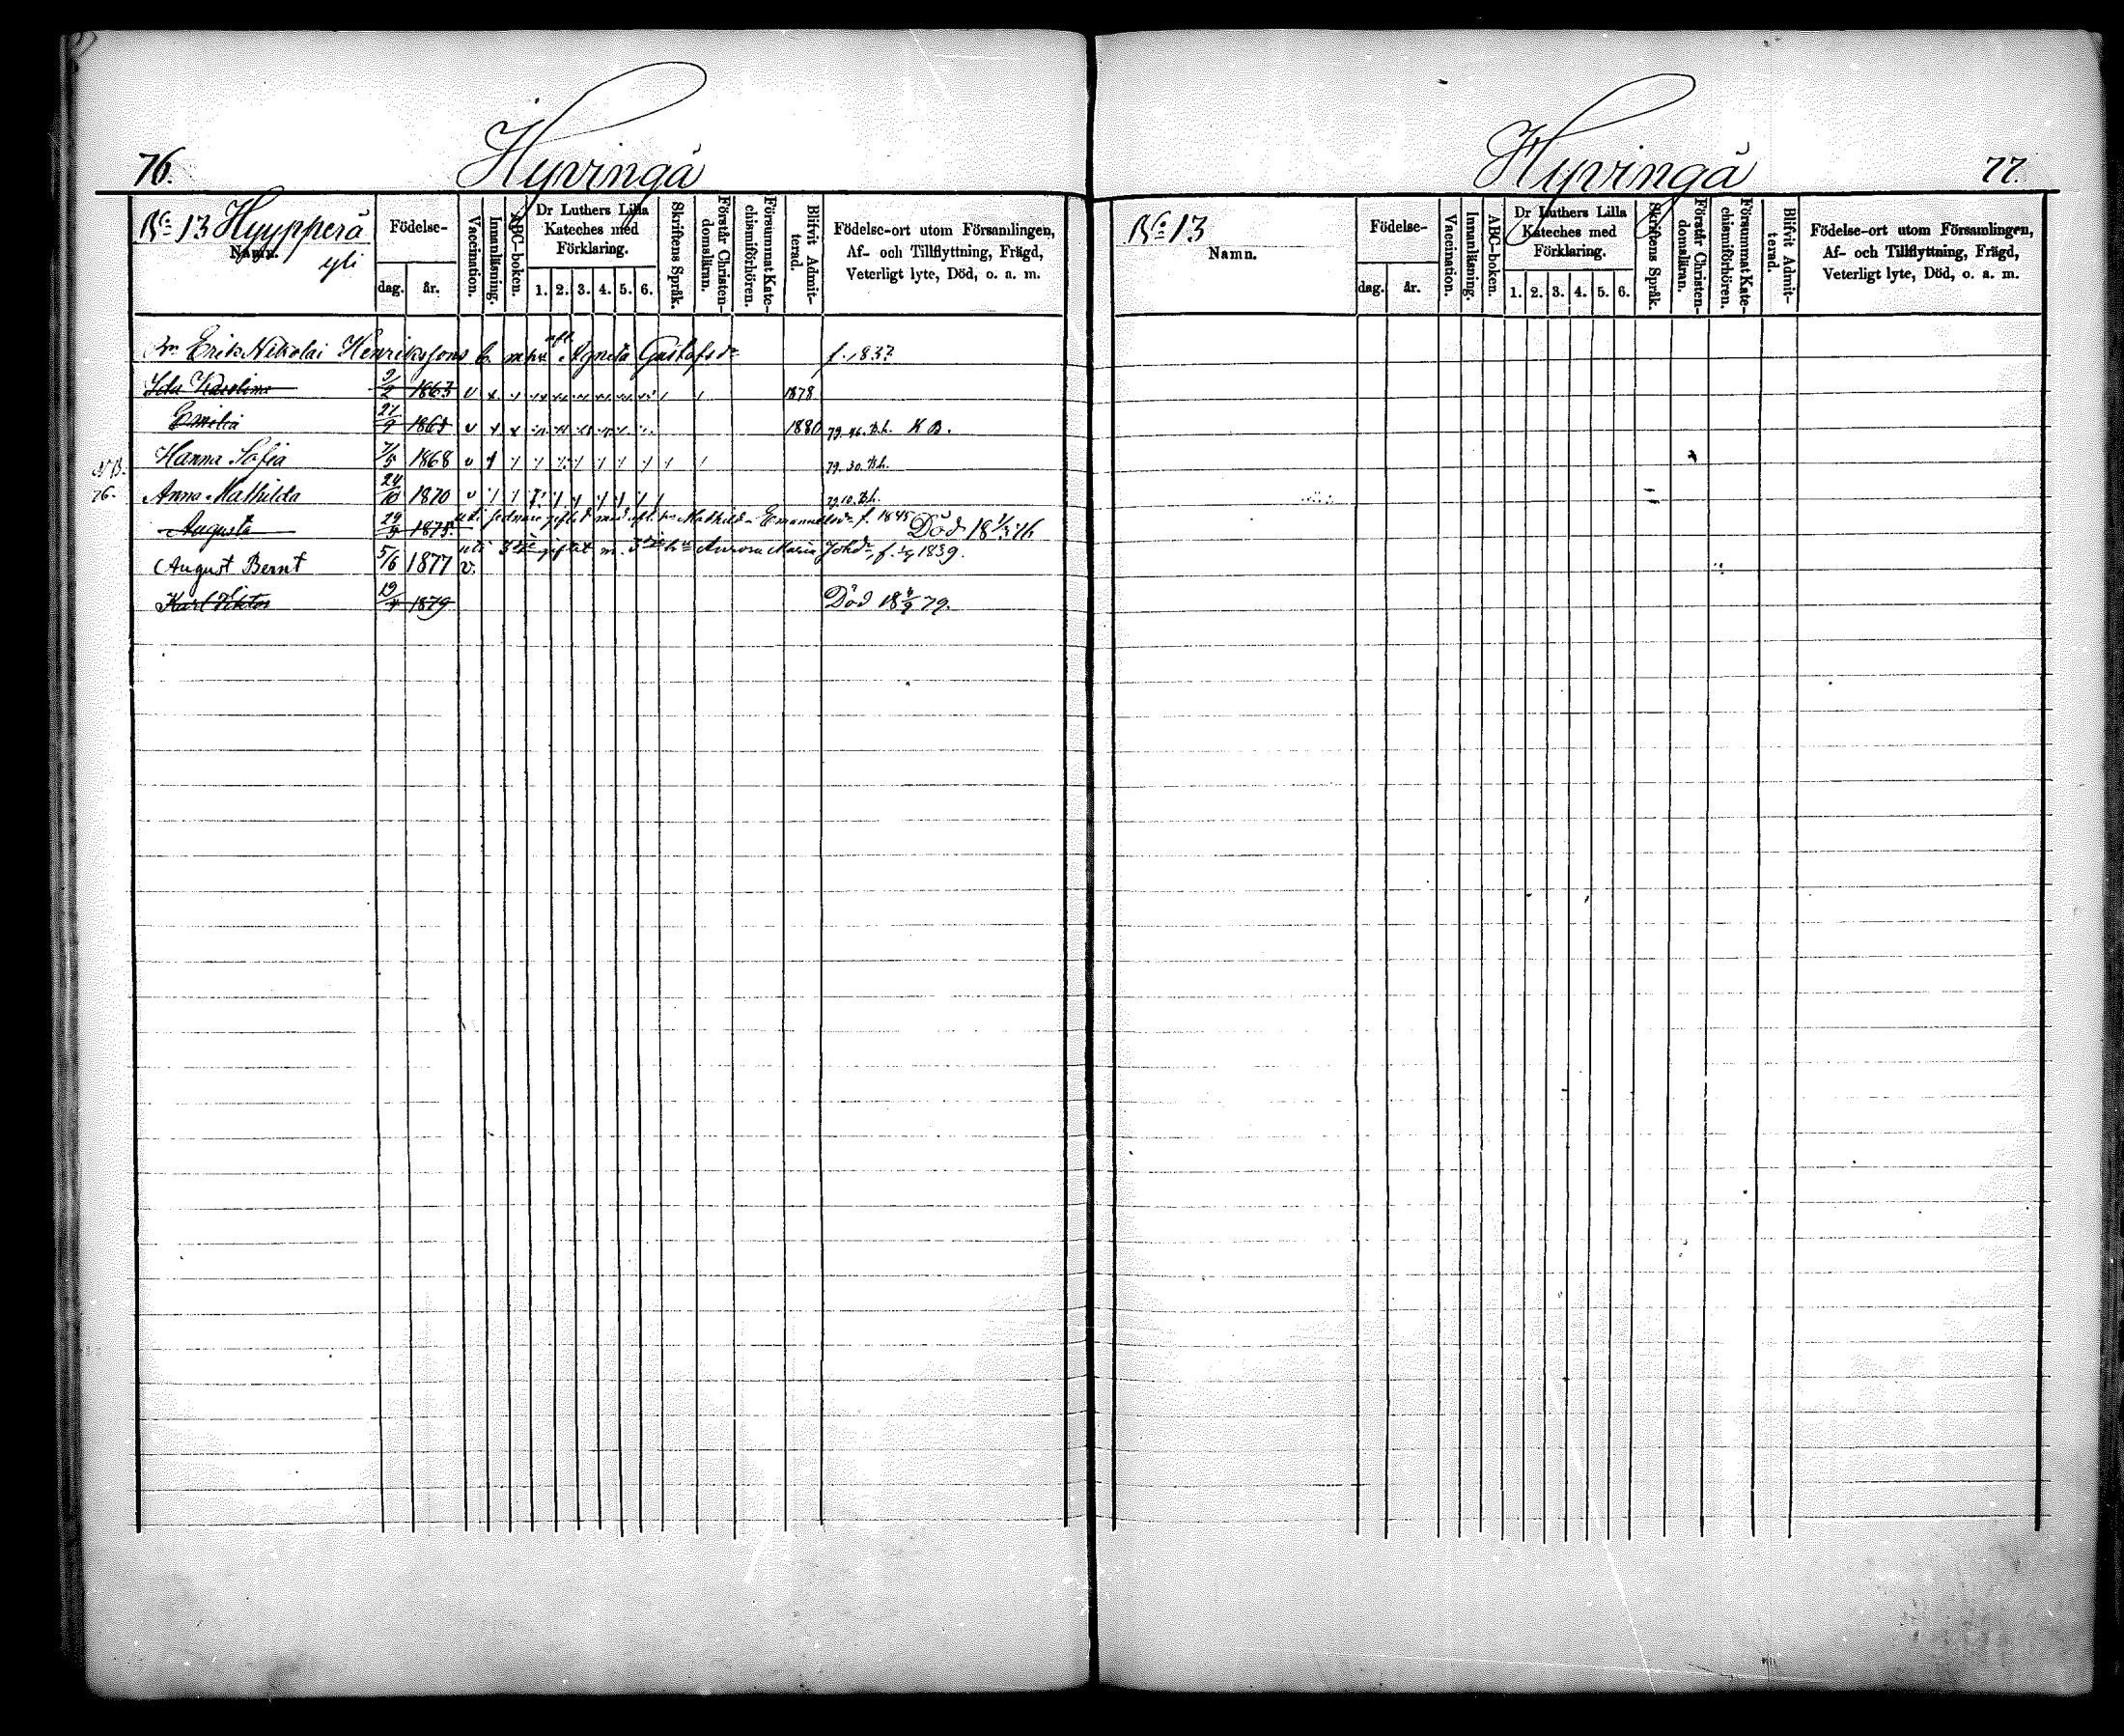 76.
Hyvingä
No 13 Hyypperä
yli
Namn.
Födelse-
dag.
år.
Vaccination.
Innanläsning.
ABC-boken.
Dr Luthers Lilla
Kateches med
Förklaring.
1. 2. 3. 4. 5. 6.
Skriftens Språk.
Förstår Christen-
domsläran.
Försummat Kate-
chismiförhören.
Blifvit Admit-
terad.
Födelse-ort utom Församlingen,
Af- och Tillflyttning, Frägd,
Veterligt lyte, Död, o. a. m.
Erik Nikolai Henrikssons b. m. Agneta Gustafsdr f. 1837
Ida Karolina 9/2 1863 v 1878
Emilia 27/9 1865 v 1880 79. 46. K B.
Hanna Sofia 7/5 1868 v 79. 30.
NB.
76.
Anna Mathilda 24/10 1870 v 79. 10.
uti sednare giftet med Mathilda Emanuelsdr f. 1845
Augusta 29/9 1875. Död 18 1/3 76
uti 3dje giftet m. 3dje h. Aurora Maria Johdr f. 1839.
August Bernt 5/6 1877 v.
Karl Viktor 19/4 1879 Död 18 79.
Hyvingä
77.
No 13
Namn.
Födelse-
dag.
år.
Vaccination.
Innanläsning.
ABC-boken.
Dr Luthers Lilla
Kateches med
Förklaring.
1. 2. 3. 4. 5. 6.
Skriftens Språk.
Förstår Christen-
domsläran.
Försummat Kate-
chismiförhören.
Blifvit Admit-
terad.
Födelse-ort utom Församlingen,
Af- och Tillflyttning, Frägd,
Veterligt lyte, Död, o. a. m.